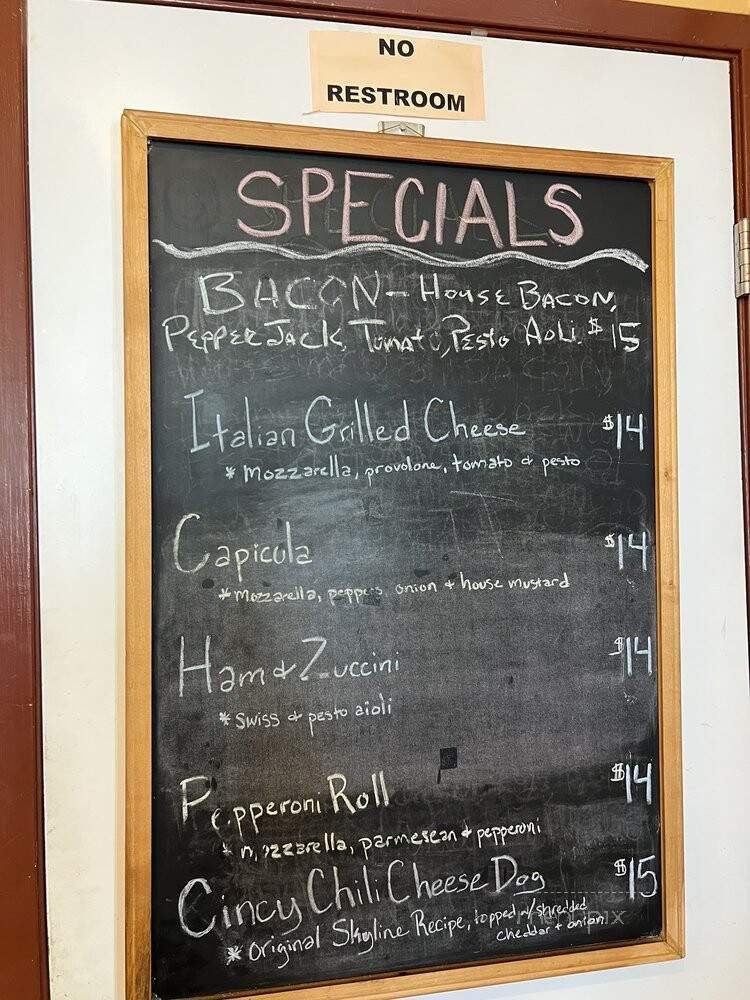 NO
RESTROOM
SPECIALS
BACON - HOUSE BACON,
PEPPER JACK, TOMATO, PESTO AOLI $15
Italian Grilled Cheese $14
* Mozzarella, provolone, tomato & pesto
Capicola $14
* Mozzarella, peppers, onion + house mustard
Ham & Zuccini $14
* Swiss & pesto aioli
Pepperoni Roll $14
* mozzarella, parmesean & pepperoni
Cincy Chili Cheese Dog $15
* Original Skyline Recipe, topped w/ shredded
cheddar + onion